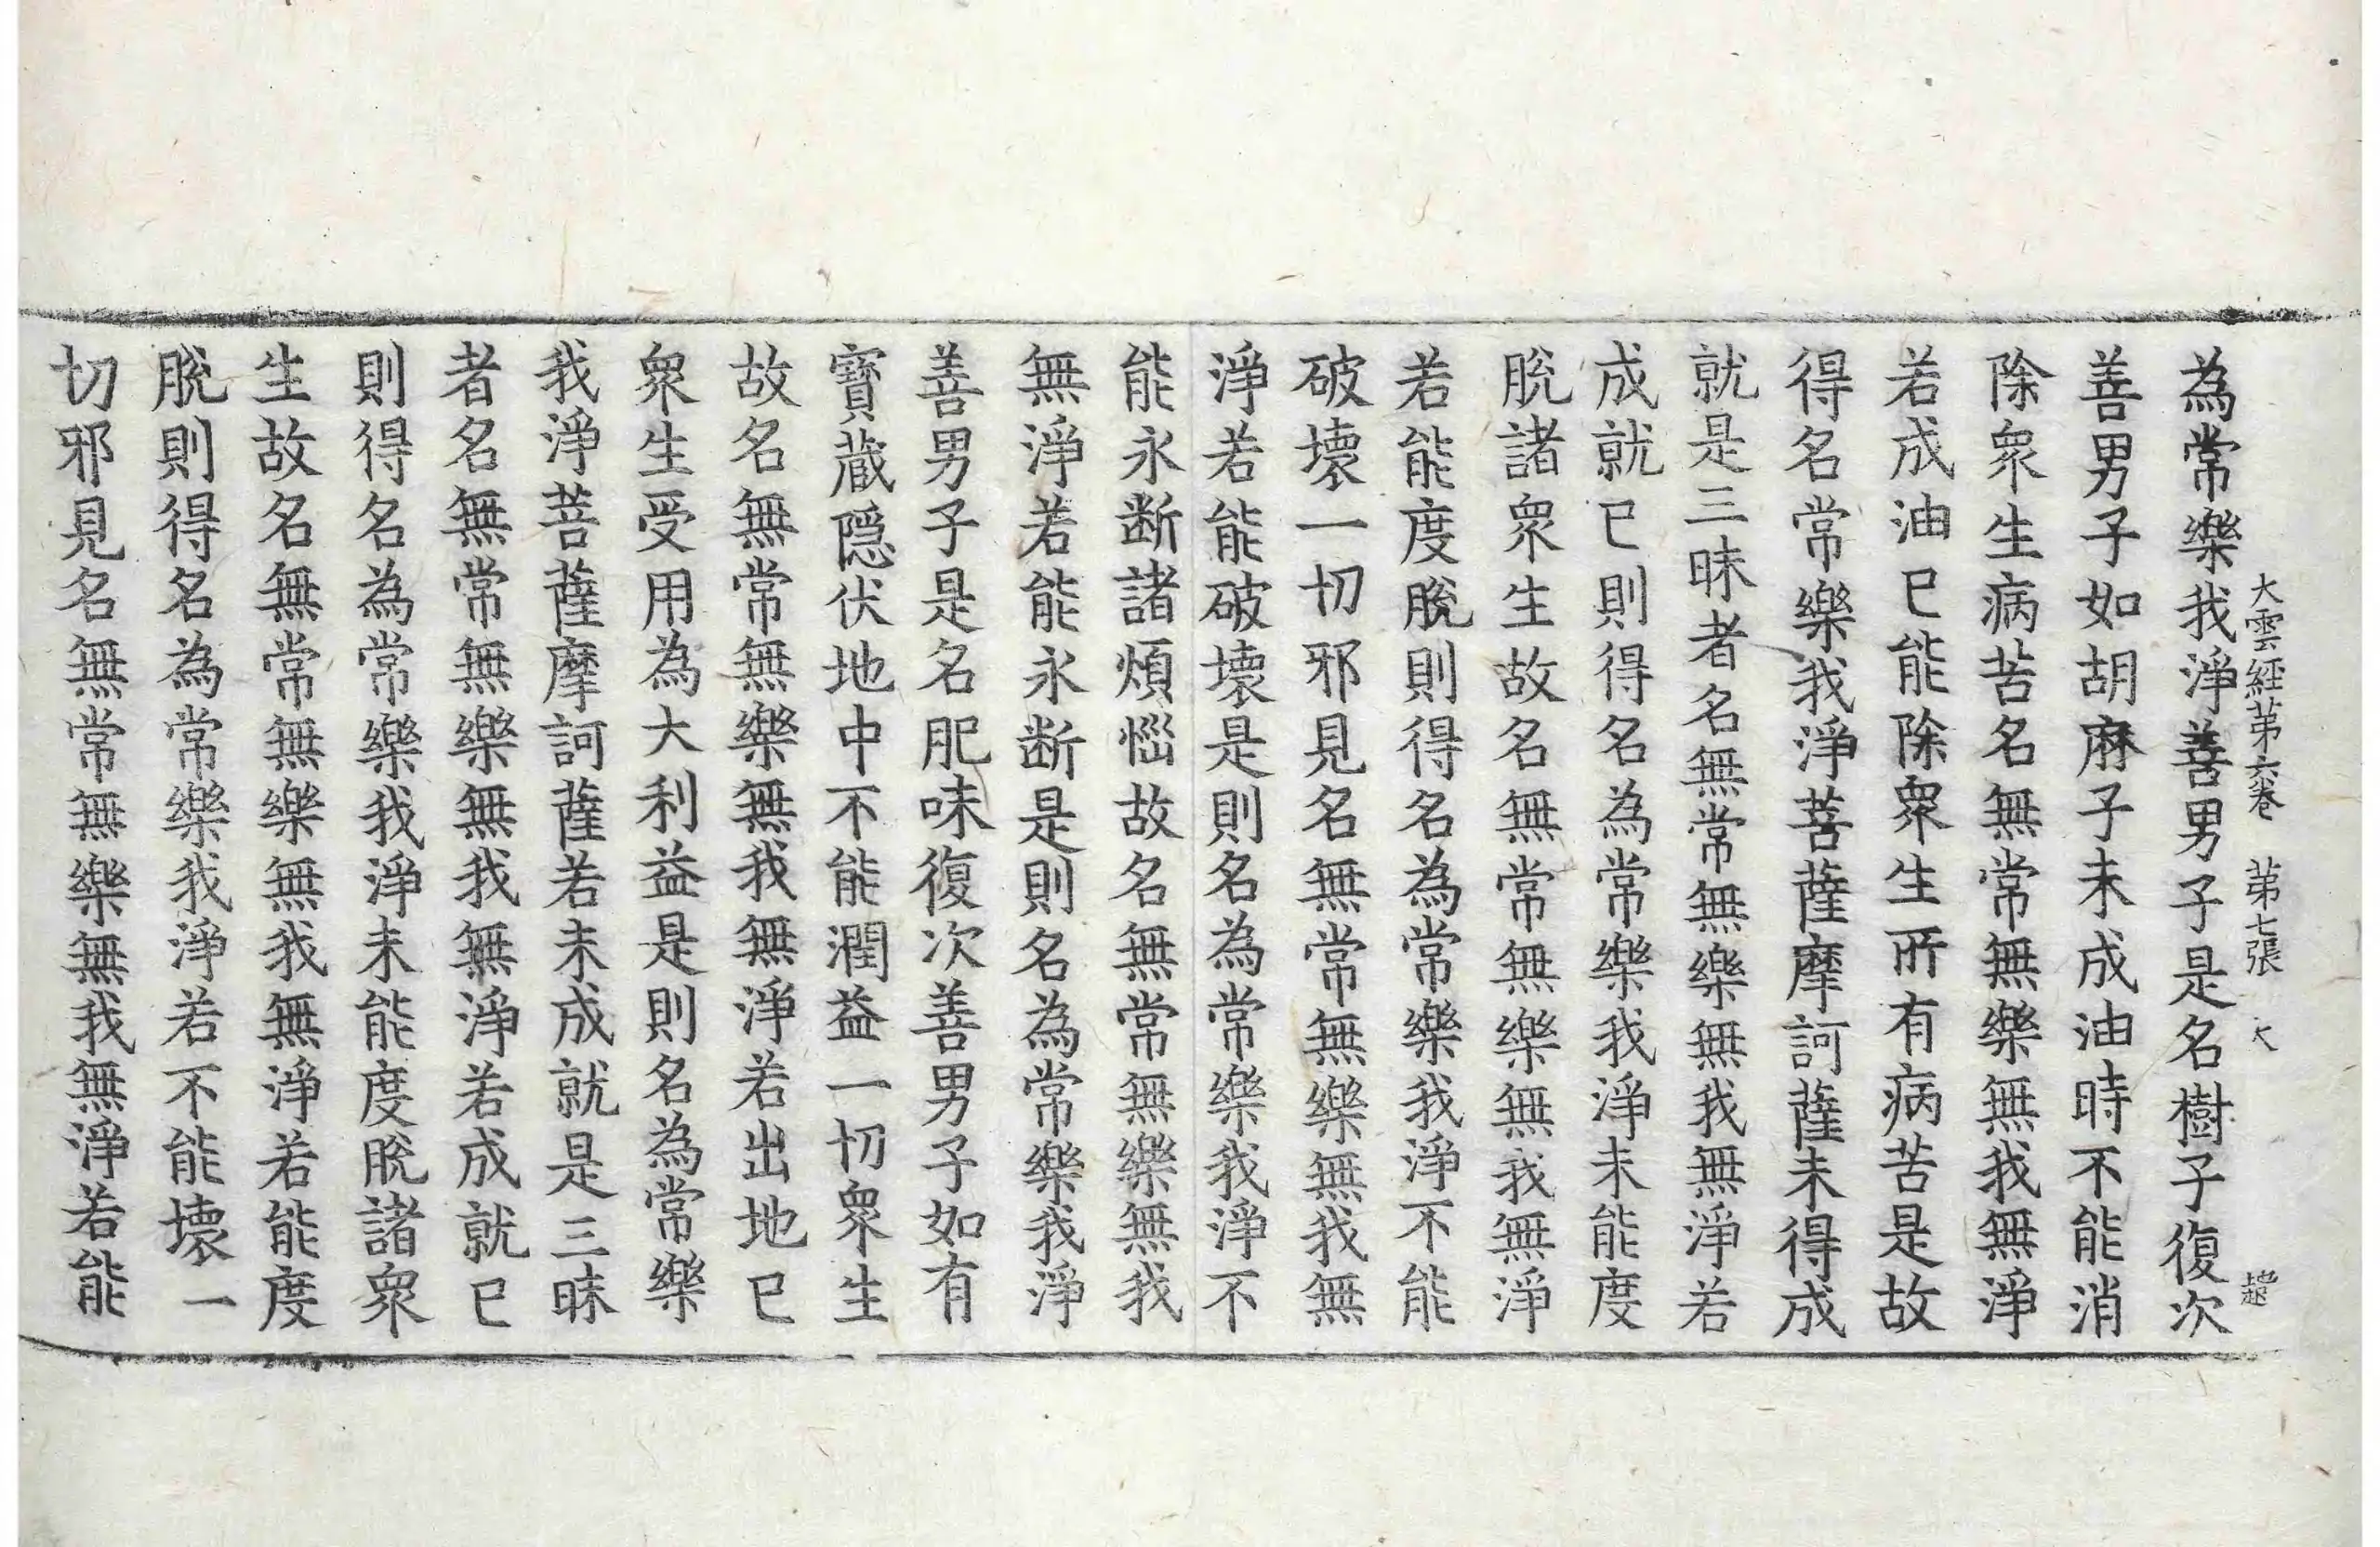 大雲経苐六巻 苐七張 大 趙
為常樂我淨善男子是名樹子復次
善男子如胡麻子未成油時不能消
除衆生病苦名無常無樂無我無淨
若成油已能除衆生所有病苦是故
得名常樂我淨菩薩摩訶薩未得成
就是三昧者名無常無樂無我無淨若
成就已則得名為常樂我淨未能度
脫諸衆生故名無常無樂無我無淨
若能度脫則得名為常樂我淨不能
破壞一切邪見名無常無樂無我無
淨若能破壞是則名為常樂我淨不
能永断諸煩惱故名無常無樂無我
無淨若能永断是則名為常樂我淨
善男子是名肥味復次善男子如有
寶蔵隠伏地中不能潤益一切衆生
故名無常無樂無我無淨若出地已
衆生受用為大利益是則名為常樂
我淨菩薩摩訶薩若未成就是三昧
者名無常無樂無我無淨若成就已
則得名為常樂我淨未能度脫諸衆
生故名無常無樂無我無淨若能度
脫則得名為常樂我淨若不能壞一
切邪見名無常無樂無我無淨若能